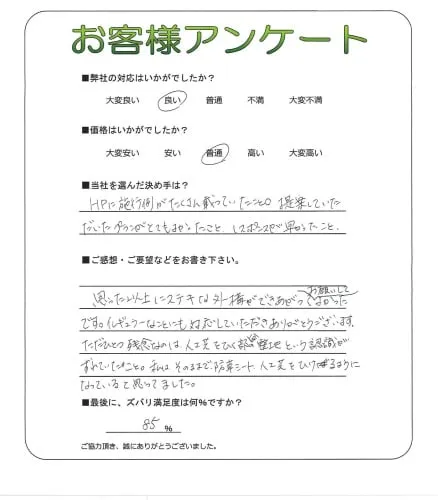 お客様アンケート
■弊社の対応はいかがでしたか？
大変良い 良い 普通 不満 大変不満
■価格はいかがでしたか？
大変安い 安い 普通 高い 大変高い
■当社を選んだ決め手は？
HPに施行例がたくさん載っていたこと。提案していた
だいたプランがとてもよかったこと、レスポンスが早かったこと。
■ご感想・ご要望などをお書き下さい。
お願いして
思った以上にステキな外構ができあがってよかった
です。イレギュラーなことにも対応していただきありがとうございます。
ただひとつ残念なのは、人工芝をひく部の整地という認識が
ずれていたこと。私は、そのままで防草シート、人工芝をひけるように
なっていると思ってました。
■最後に、ズバリ満足度は何％ですか？
85 %
ご協力頂き、誠にありがとうございました。